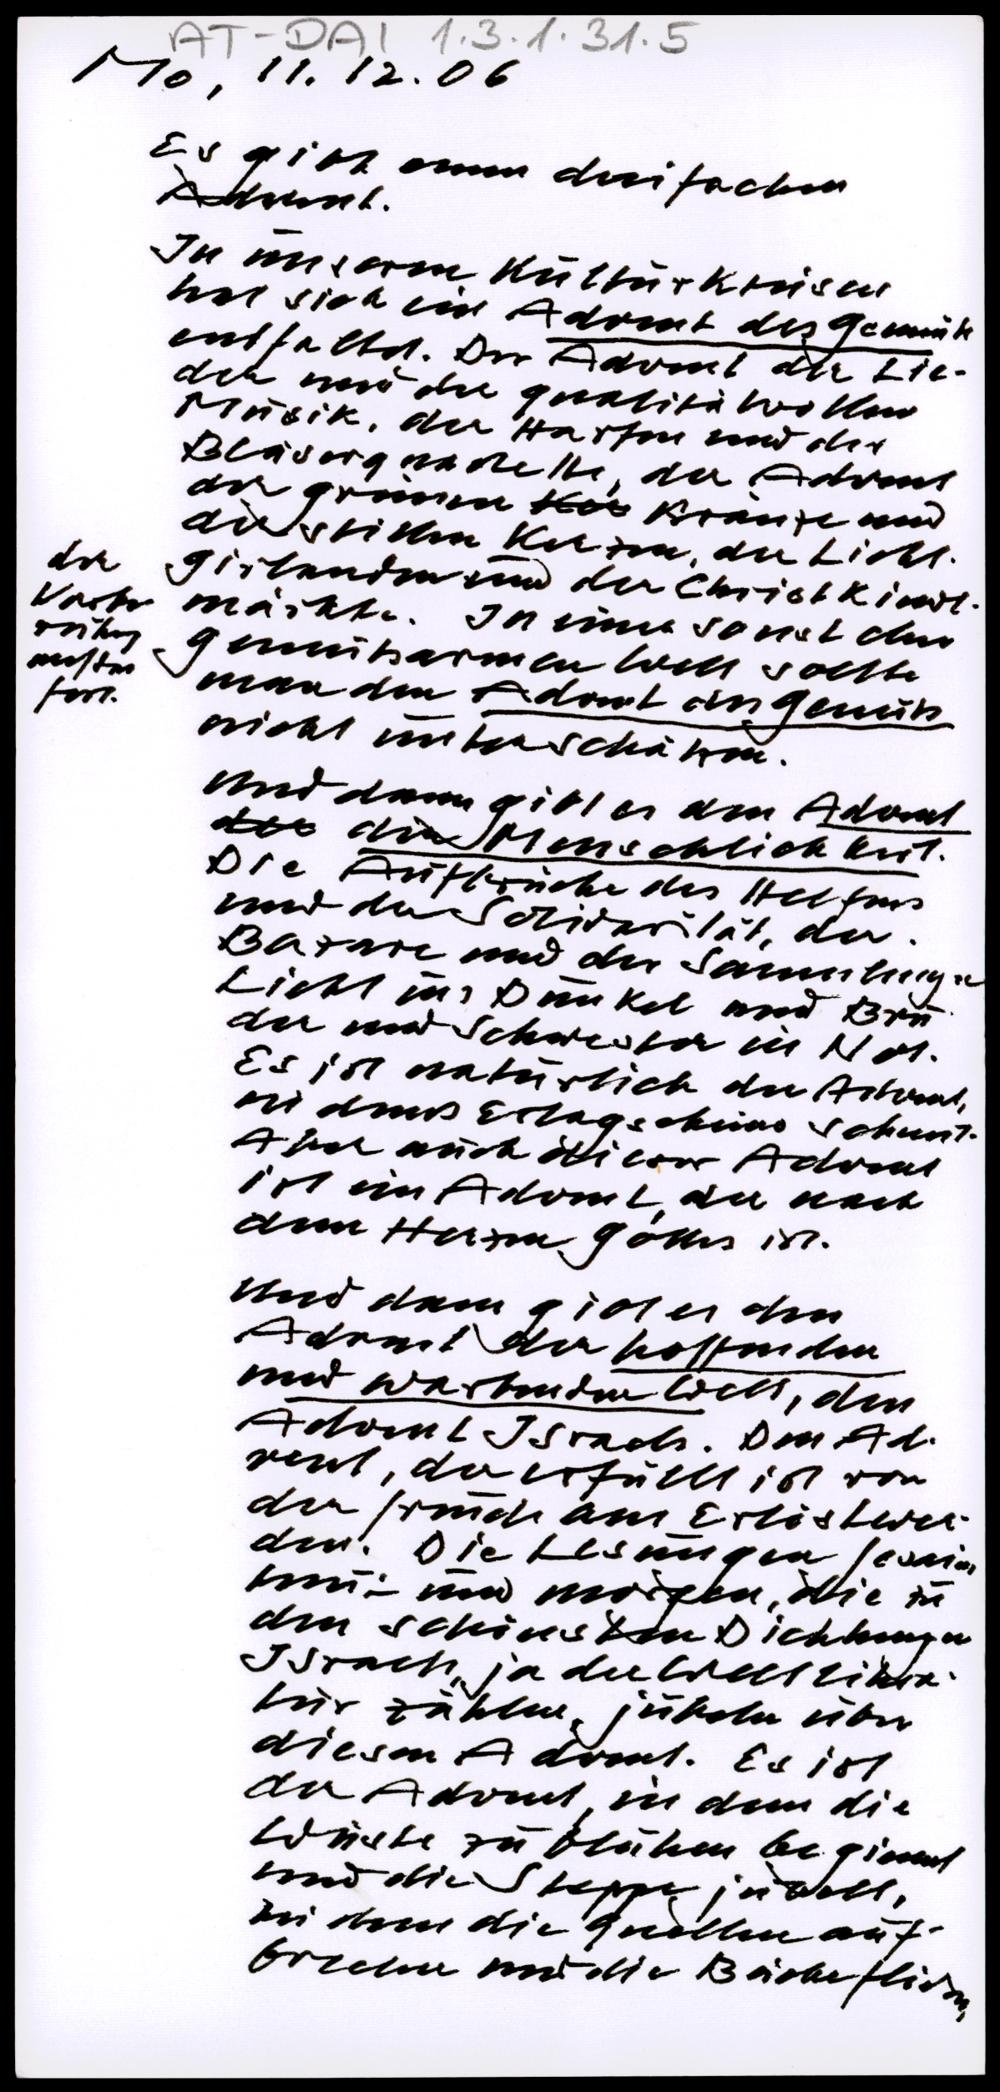 AT-DAI 1.3.1.31.5
Mo, 11.12.06
Es gibt einen dreifachen
Advent.
In unseren Kulturkreisen
hat sich ein Advent des Gemüts
entfaltet. Der Advent der Lie-
der und der qualitätvollen
Musik, der Harfen und der
Bläserquartette, der Advent
der grünen Kränze und
der stillen Kerzen, der Licht-
girlanden und der Christkindl-
märkte. In einer sonst eher
gemütsarmen Welt sollte
man den Advent des Gemüts
nicht unterschätzen.
der
fort.
Und dann gibt es den Advent
der Menschlichkeit.
Die Aufbrüche des Helfens
und der Solidarität, der
Bazare und der Sammlungen
Licht ins Dunkel und Bru-
der und Schwester in Not.
Es ist natürlich der Advent,
in dem's Erlagscheine schneit.
Aber auch dieser Advent
ist ein Advent, der nach
dem Herzen Gottes ist.
Und dann gibt es den
Advent der hoffenden
und wartenden Welt, den
Advent Israels. Den Ad-
vent, der erfüllt ist von
der Freude am Erlöstwer-
den. Die Lesungen Jesaias
heute und morgen, die zu
den schönsten Dichtungen
Israels, ja der Weltlitera-
tur zählen, jubeln über
diesen Advent. Es ist
der Advent, in dem die
Wüste zu blühen beginnt
und die Steppe jubelt,
in dem die Quellen auf-
brechen und die Bäche fließen,